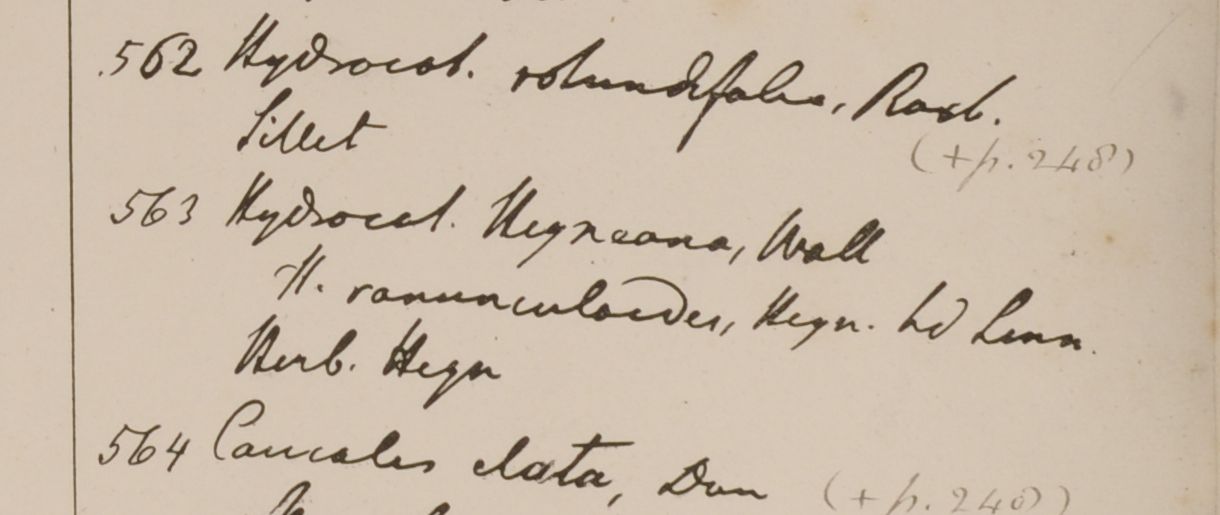 562 Hydrocot. rotundifolia, Roxb.
Sillet
(+p. 248)
563 Hydrocot. Heyneana, Wall
H. ranunculoides, Heyn. Linn.
Herb. Heyn
564 Caucalis elata, Don (+ p. 248)